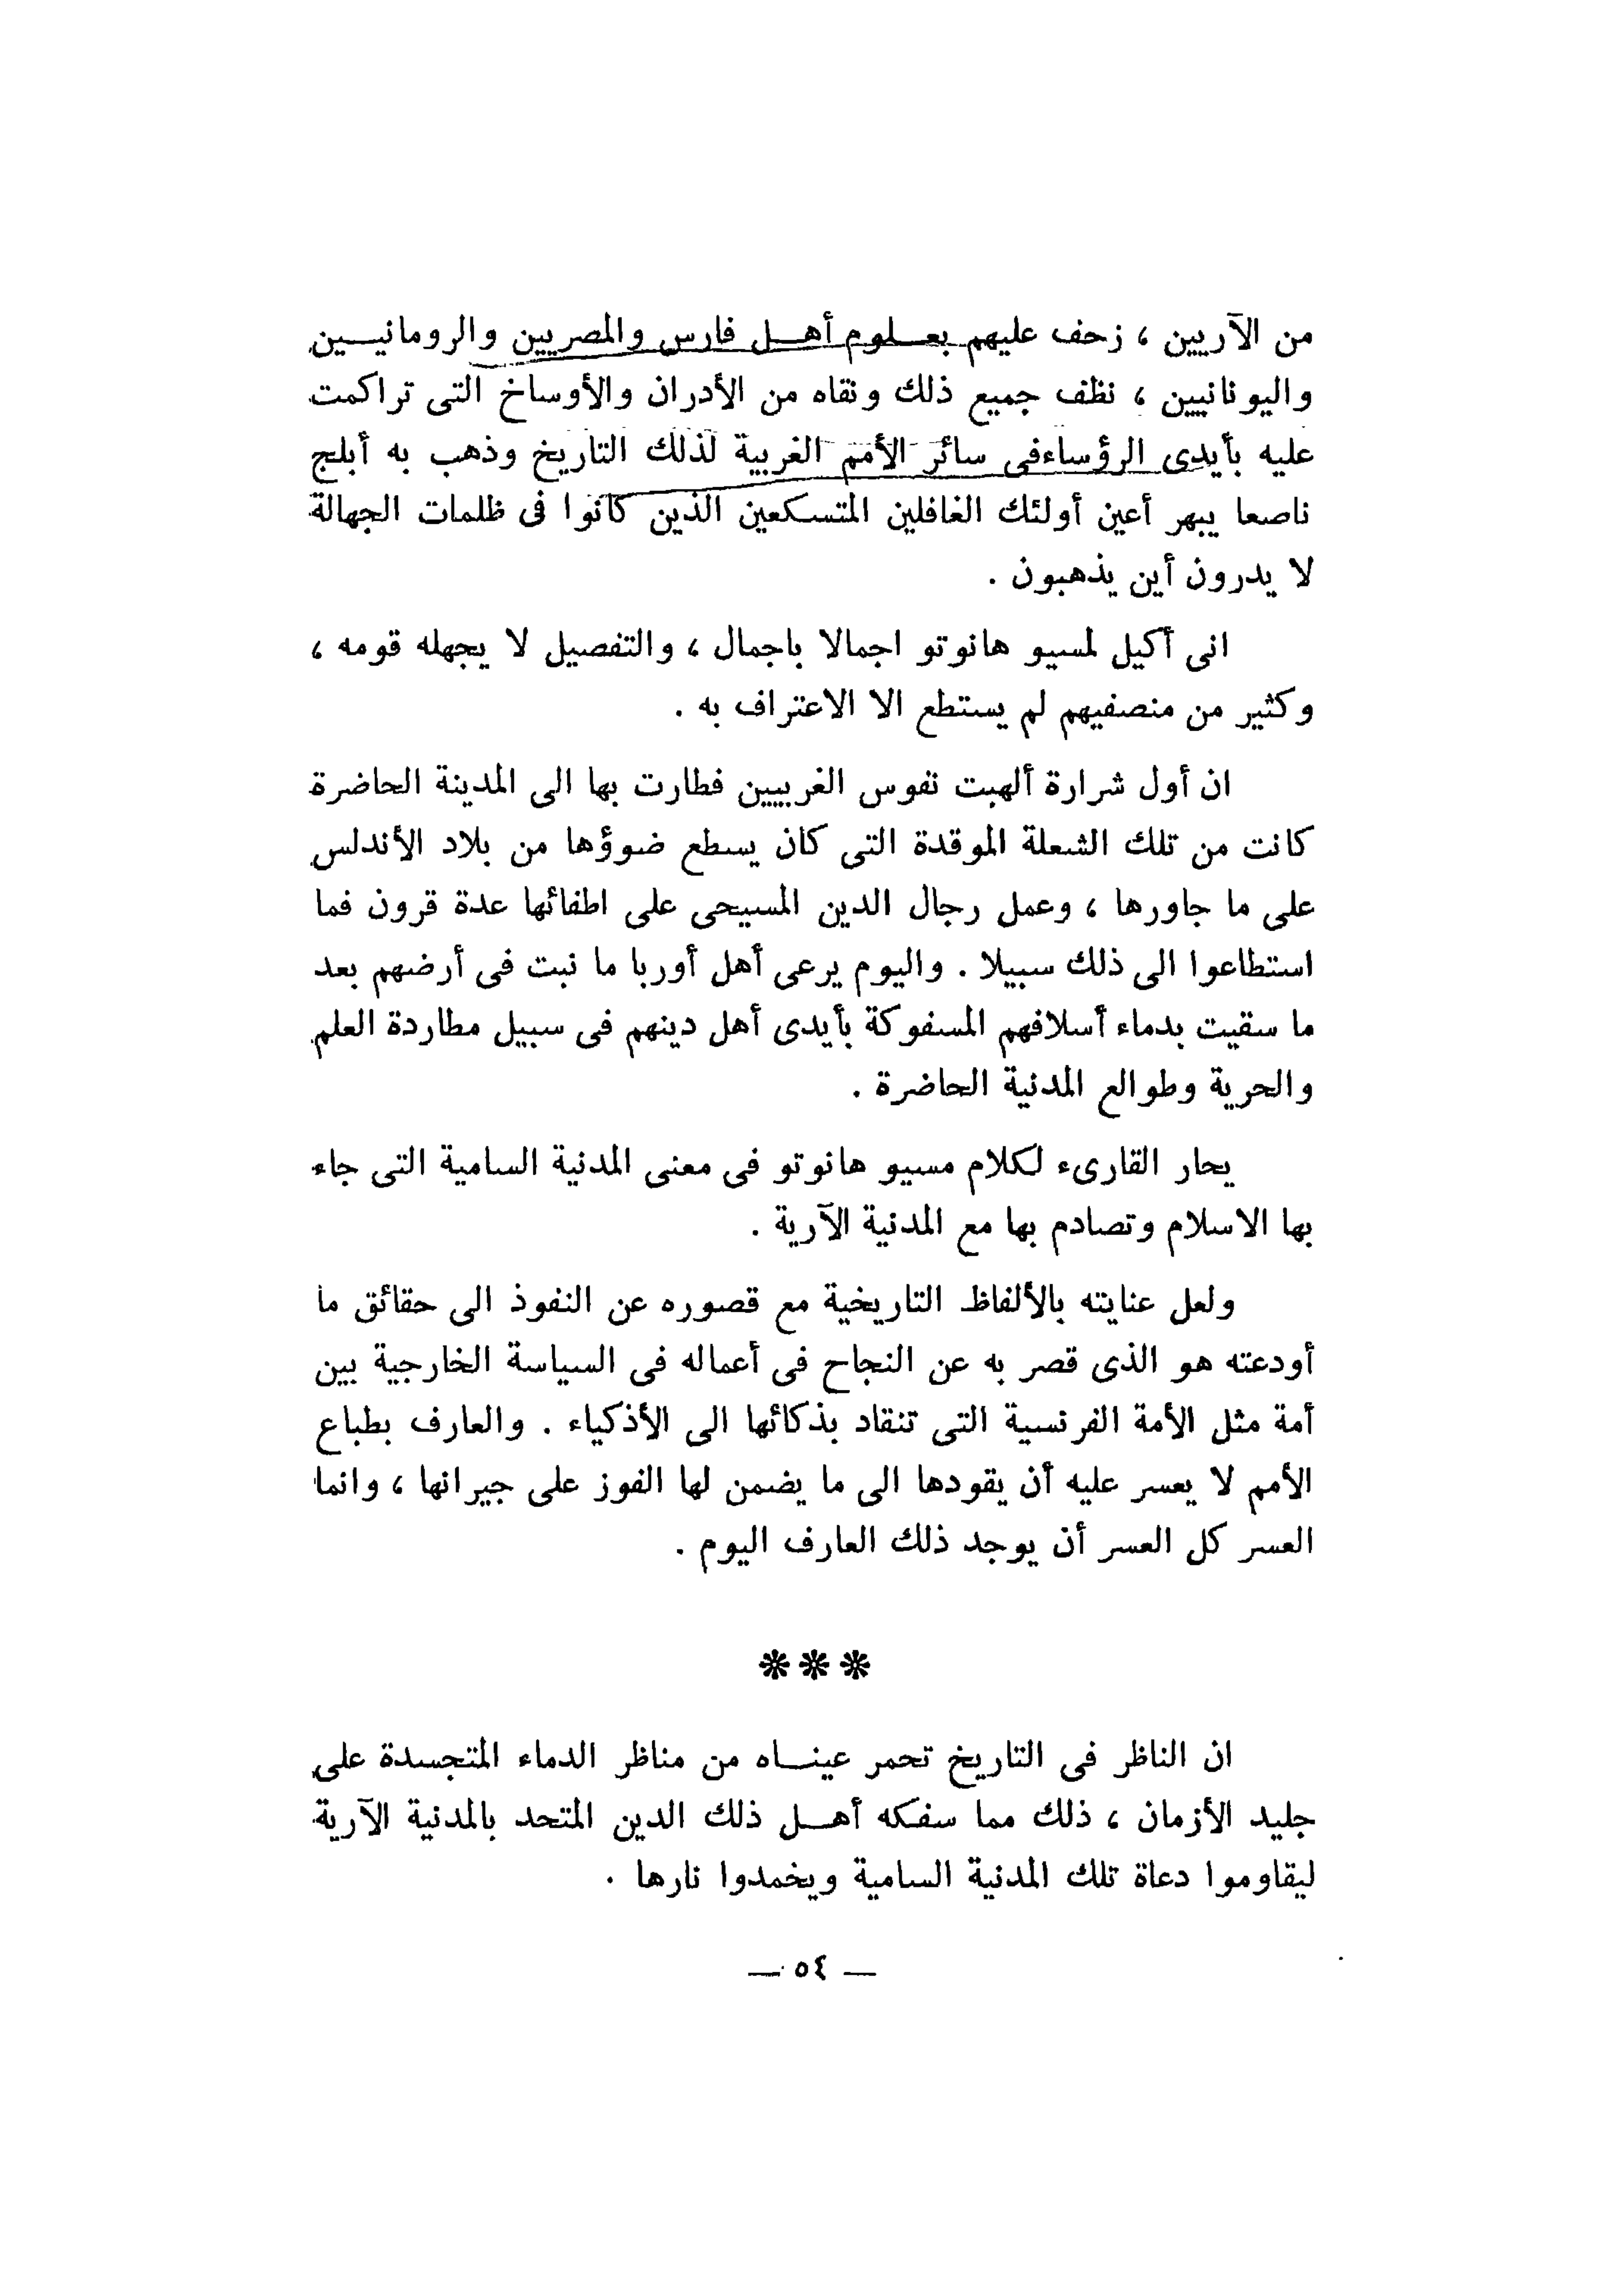 من الآريين ، زحف عليهم بعـلوم أهـل فارس والمصريين والرومانيـين
واليونانيين ، نظف جميع ذلك ونقاه من الأدران والأوساخ التى تراكمت
عليه بأيدى الرؤساءفى سائر الأمم الغربية لذلك التاريخ وذهب به أبلج
ناصعا يبهر أعين أولئك الغافلين المتسكعين الذين كانوا فى ظلمات الجهالة
لا يدرون أين يذهبون .
انى أكيل لمسيو هانوتو اجمالا باجمال ، والتفصيل لا يجهله قومه ،
وكثير من منصفيهم لم يستطع الا الاعتراف به .
ان أول شرارة ألهبت نفوس الغربيين فطارت بها الى المدينة الحاضرة
كانت من تلك الشعلة الموقدة التى كان يسطع ضوؤها من بلاد الأندلس
على ما جاورها ، وعمل رجال الدين المسيحى على اطفائها عدة قرون فما
استطاعوا الى ذلك سبيلا . واليوم يرعى أهل أوربا ما نبت فى أرضهم بعد
ما سقيت بدماء أسلافهم المسفوكة بأيدى أهل دينهم فى سبيل مطاردة العلم
والحرية وطوالع المدنية الحاضرة .
يحار القارىء لكلام مسيو هانوتو فى معنى المدنية السامية التى جاء
بها الاسلام وتصادم بها مع المدنية الآرية .
ولعل عنايته بالألفاظ التاريخية مع قصوره عن النفوذ الى حقائق ما
أودعته هو الذى قصر به عن النجاح فى أعماله فى السياسة الخارجية بين
أمة مثل الأمة الفرنسية التى تنقاد بذكائها الى الأذكياء . والعارف بطباع
الأمم لا يعسر عليه أن يقودها الى ما يضمن لها الفوز على جيرانها ، وانما
العسر كل العسر أن يوجد ذلك العارف اليوم .
***
ان الناظر فى التاريخ تحمر عينـاه من مناظر الدماء المتجسدة على
جليد الأزمان ، ذلك مما سفكه أهـل ذلك الدين المتحد بالمدنية الآرية
ليقاوموا دعاة تلك المدنية السامية ويخمدوا نارها .
— ٥٤ —